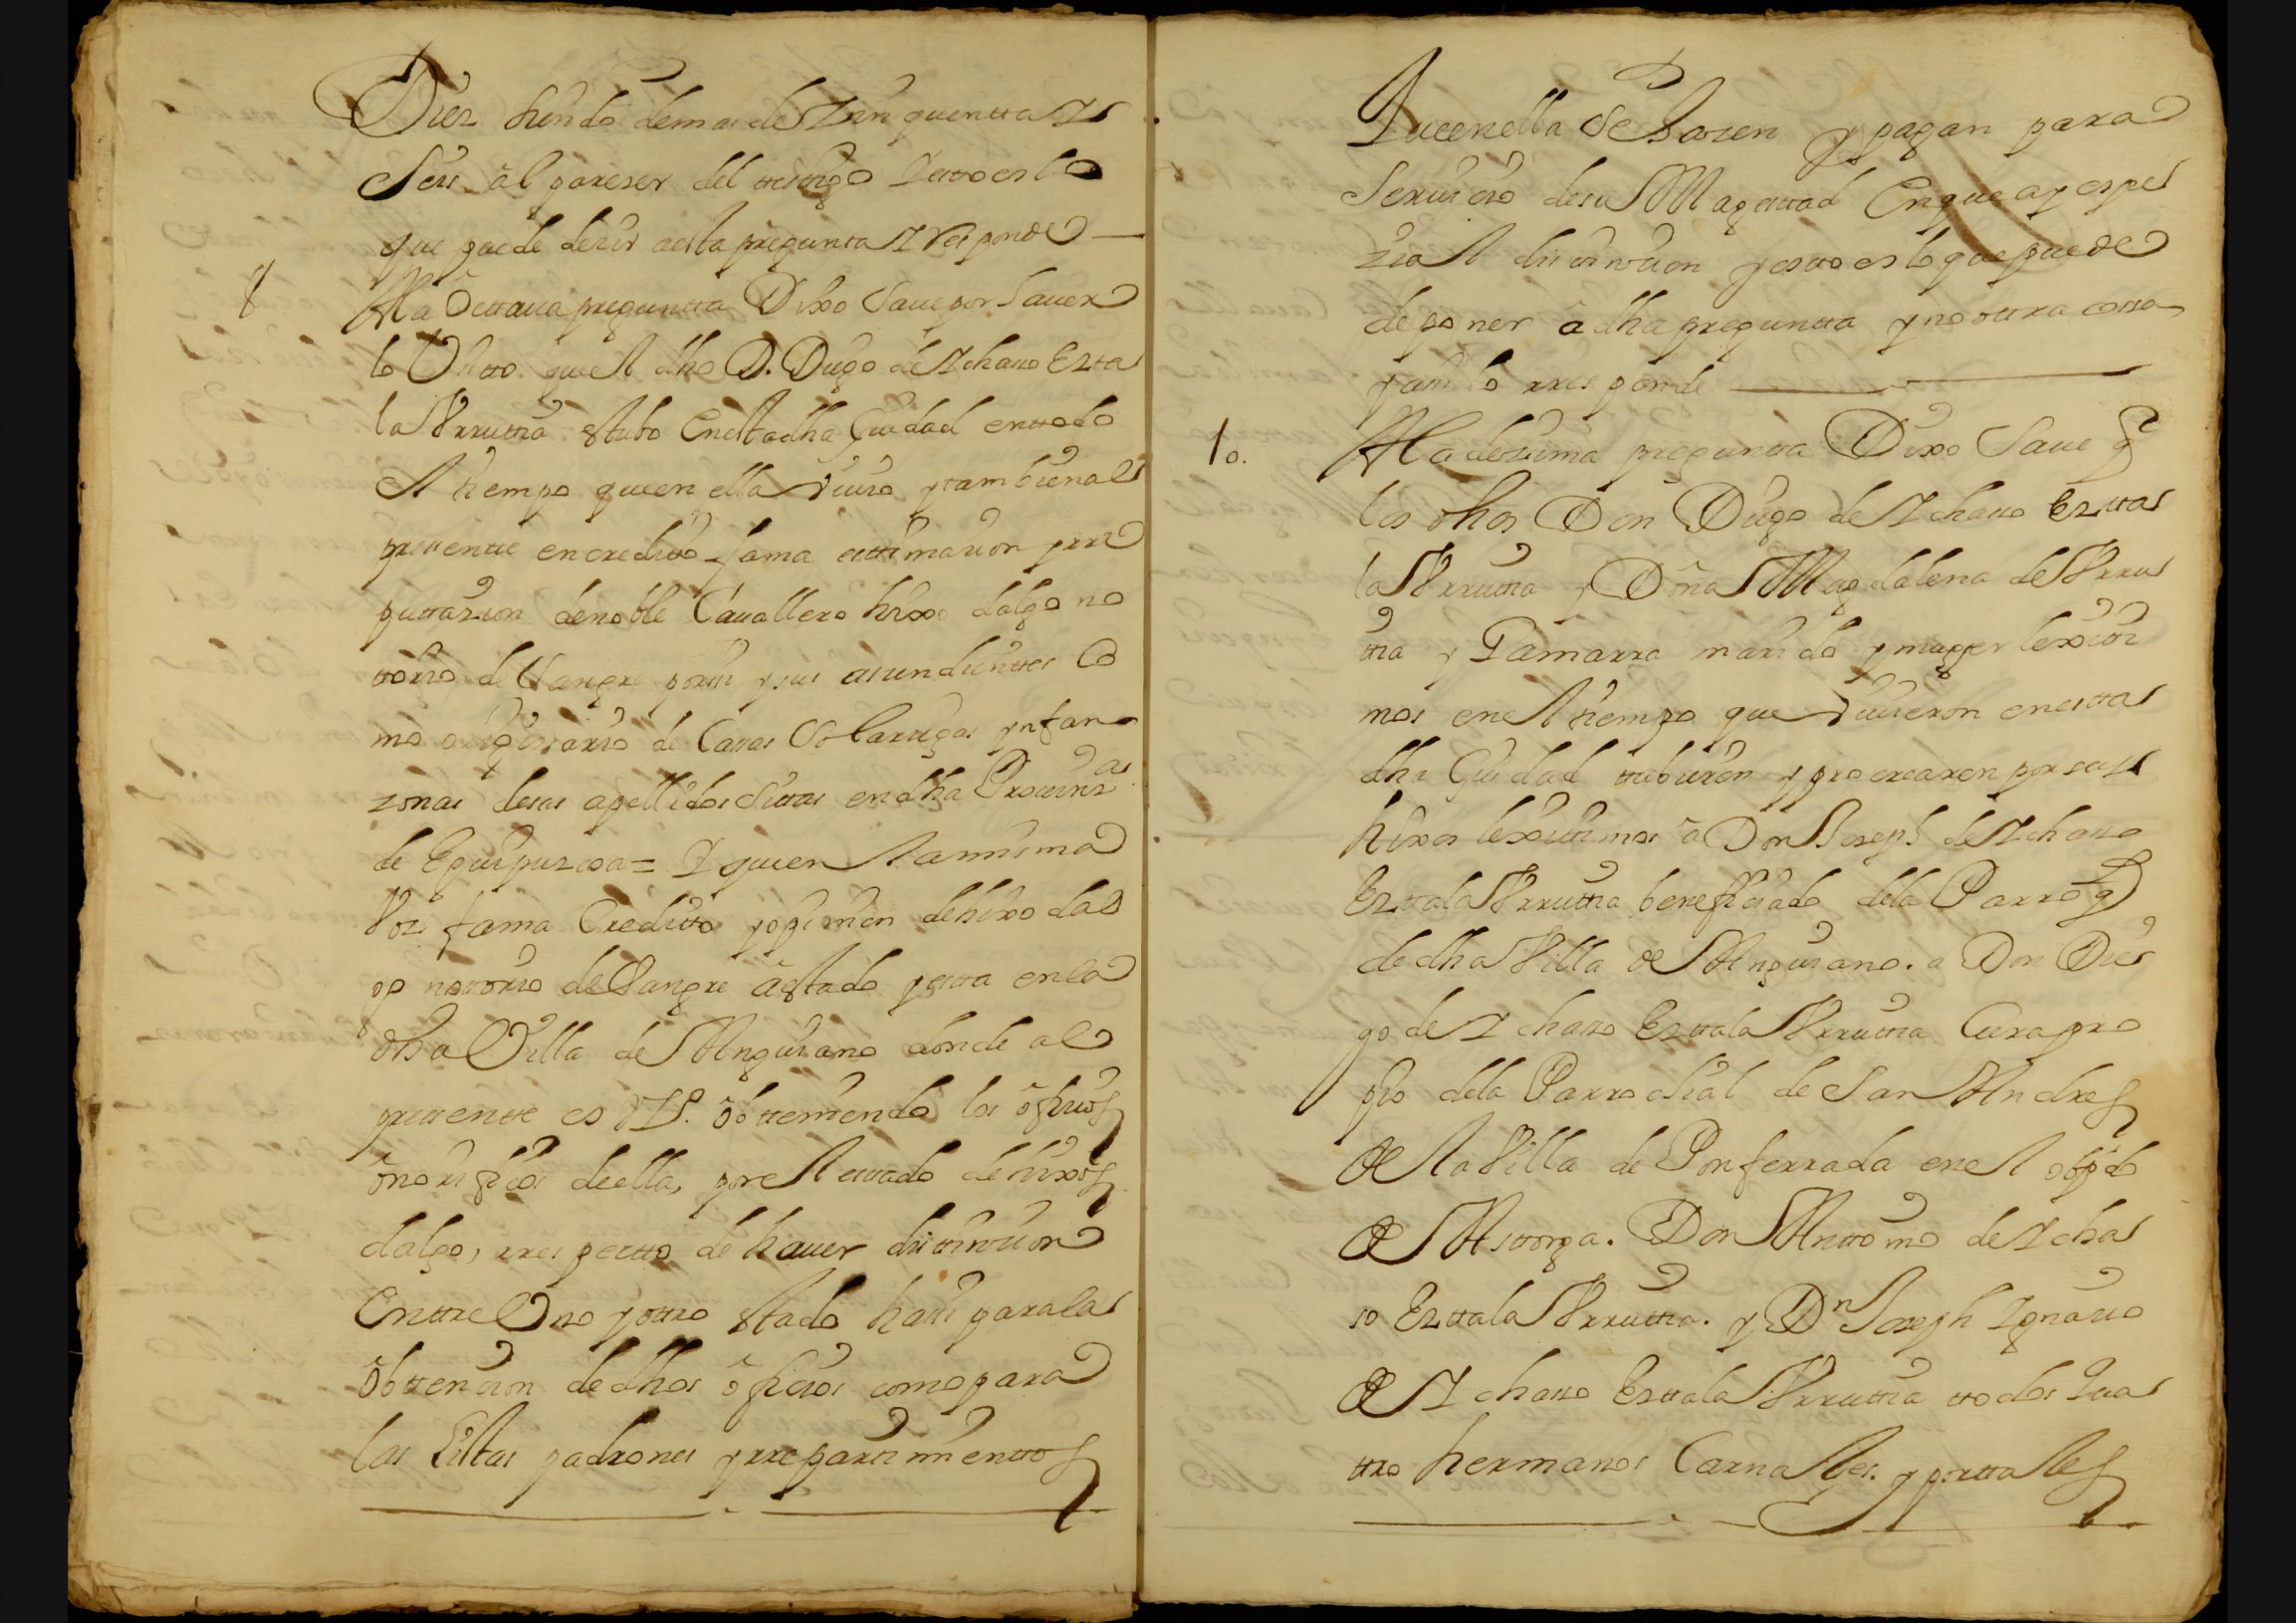 Diez siendo demas de Zinquenta y
Seis al pareser del testigo y esto es lo
que puede dezir a esta pregunta y responde —
8 A la Octtaua preguntta Dixo Saue por Sauer
lo Visto que el dho D. Diego de Ichaso Ezta
la Vrruttia stubo En esta dha Ciudad en todo
el tiempo que en ella viuio y tambien al
presentte en creditto fama estimazion y rre
puttazion de noble Cauallero hixo dalgo no
ttorio de Sangre por si y sus asendienttes Co
mo originario de Casas Solariegas ynfan
zonas de sus apellidos Sittas en dha Prouinz.as
de Eguipuzcoa = Y que en la misma
Voz fama Creditto y opinion de hixo dal
go nottorio de Sangre a estado y esta en la
dha Villa de Anguiano donde al
presentte es Vz.º obtteniendo los ofizios
onorificos de ella, por el estado de hixos
dalgo, rrespectto de hauer distinzion
Enttre Uno y ottro stado hasi para la
obttencion de dhos oficios como para
las Listas padrones y rrepartimienttos
Que en ella se hazen y pagan para
Seruicio de su Magesttad En que ay espe
zial distinzion y estto es lo que puede
deponer a dha preguntta y no ottra cossa
y asi lo rresponde —
10. A la dezima preguntta Dixo Saue q.e
los dhos Don Diego de Ichaso Eztta
la Vrruttia y Doña Magdalena de Vrru
ttia y Gamarra marido y muger lexitti
mos en el tiempo que viuieron en estta
dha Ciudad ttubieron y procrearon por sus
hixos lexittimos a Don Joseph de Ichaso
Ezttala Vrruttia beneficiado de la Parroq.l
de dha Villa de Anguiano. a Don Die
go de Ichaso Ezttala Vrruttia Cura pro
pio de la Parrochial de San Andres
de la Villa de Ponferrada en el obpdo
de Asttorga. Don Anttonio de Icha
so Ezttala Vrruttia. y Dn Joseph Ignacio
de Ichaso Ezttala Vrruttia ttodos qua
ttro hermanos Carnales. y por ttales